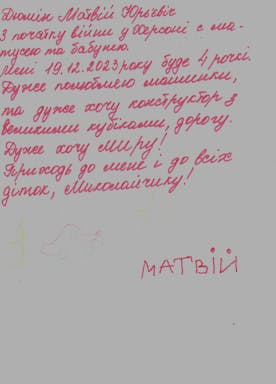 Дюмін Матвій Юрьєвіч
З початку війни у Херсоні с ма-
тусею та бабунею.
Мені 19.12.2023 року буде 4 рочкі.
Дуже полюбляю машинки,
та дуже хочу конструктор з
великими кубіками, дорогу.
Дуже хочу Миру!
Приходь до мене і до всіх
діток, Миколайчику!
МАТВІЙ